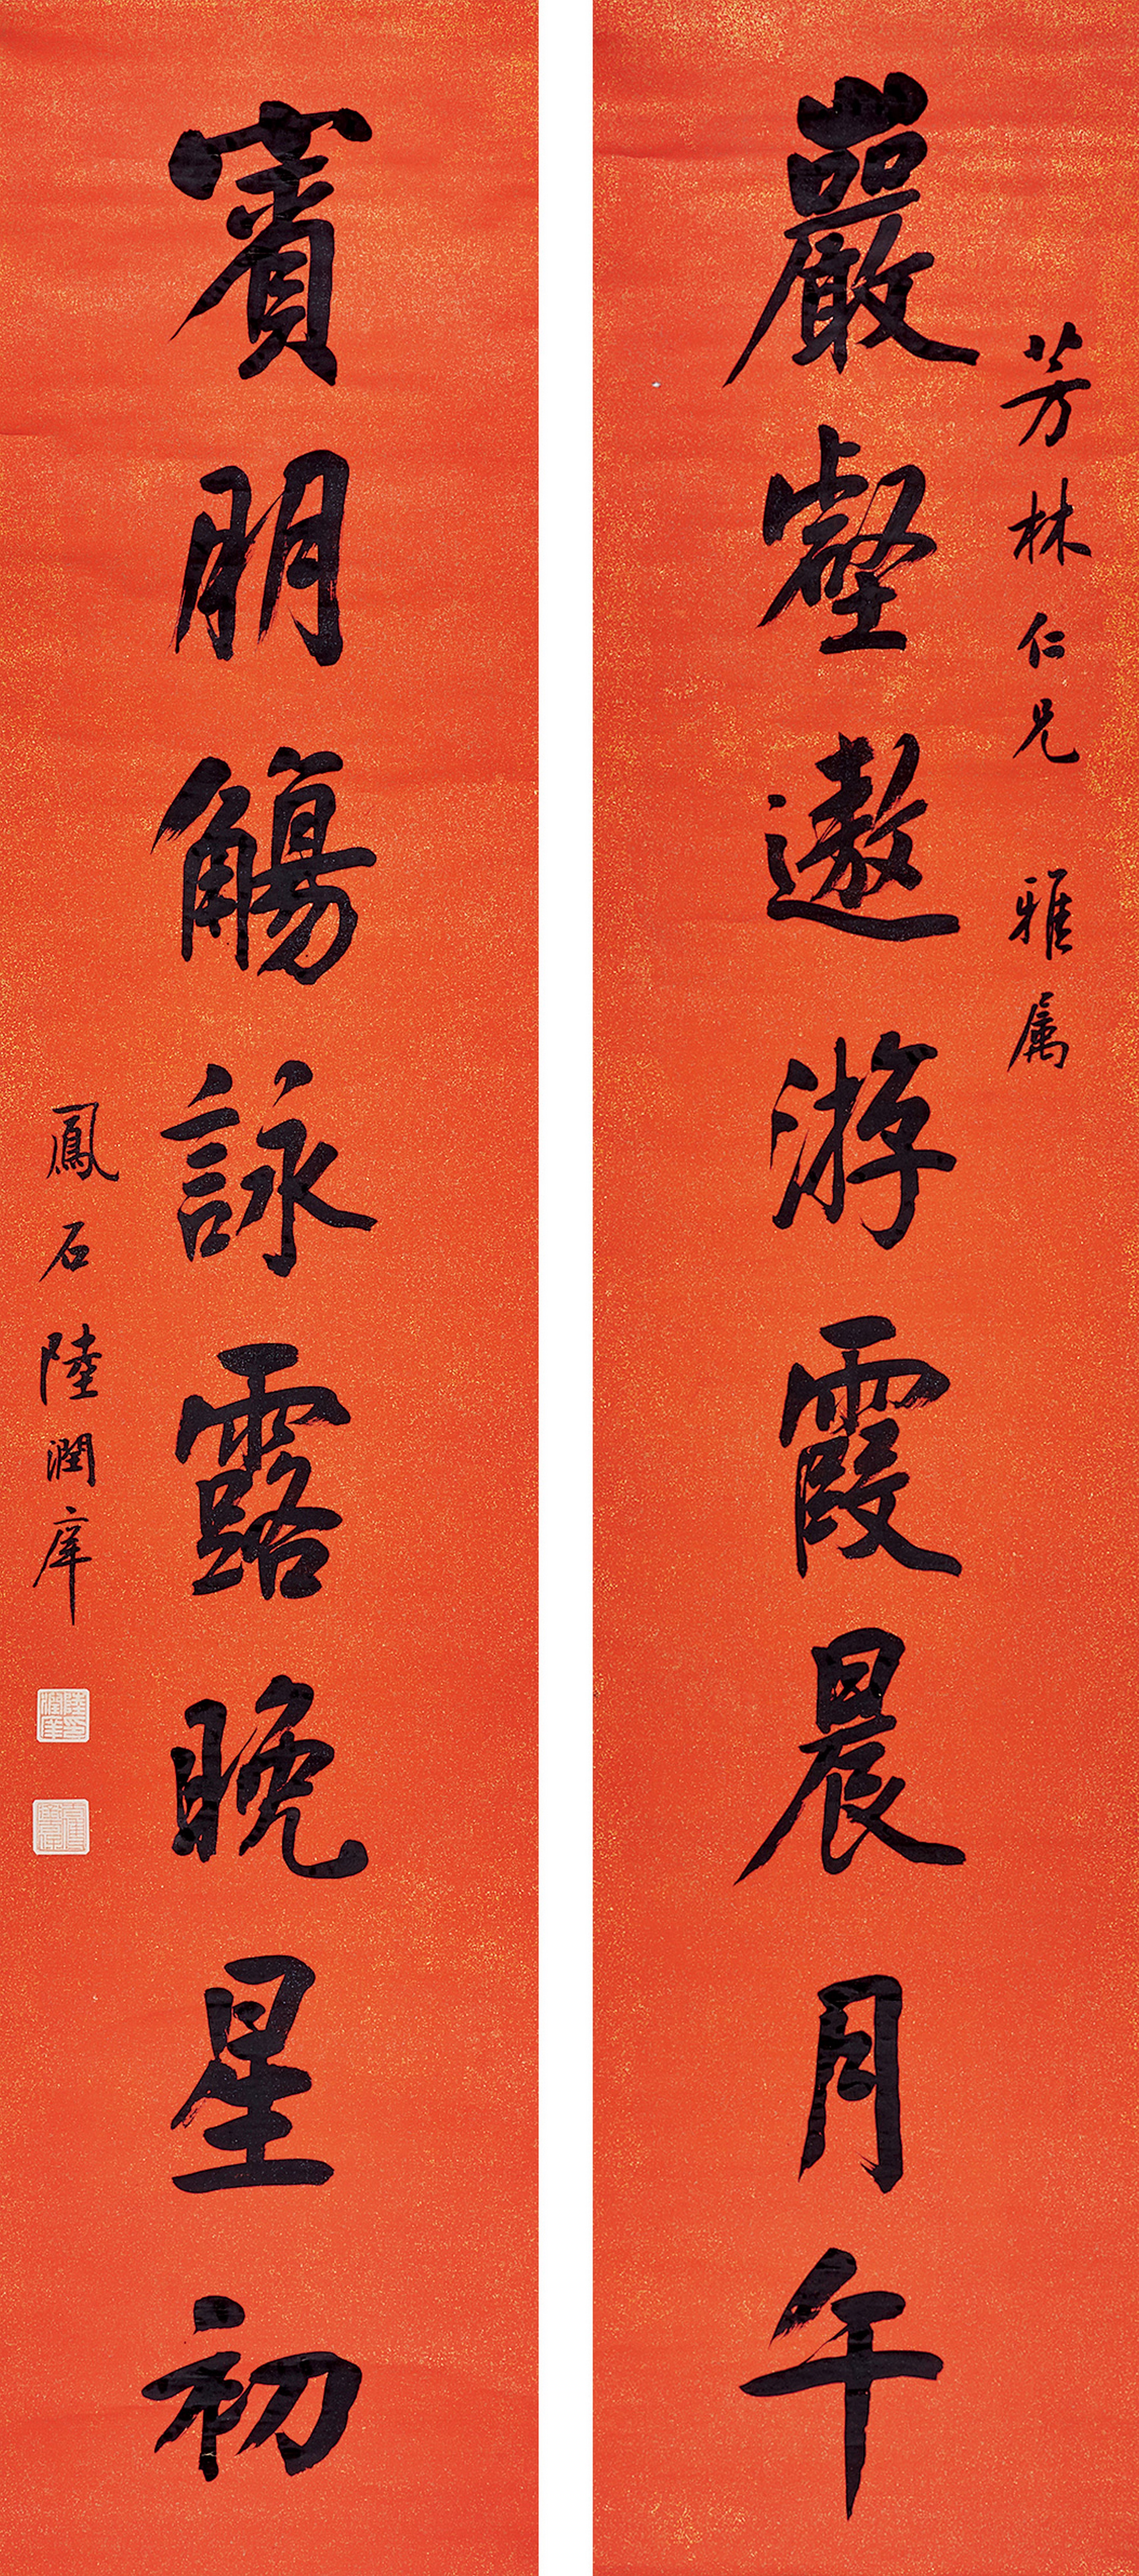 芳林仁兄雅属
巖壑遨游霞晨月午
賓朋觴詠露晚星初
鳳石陸潤庠